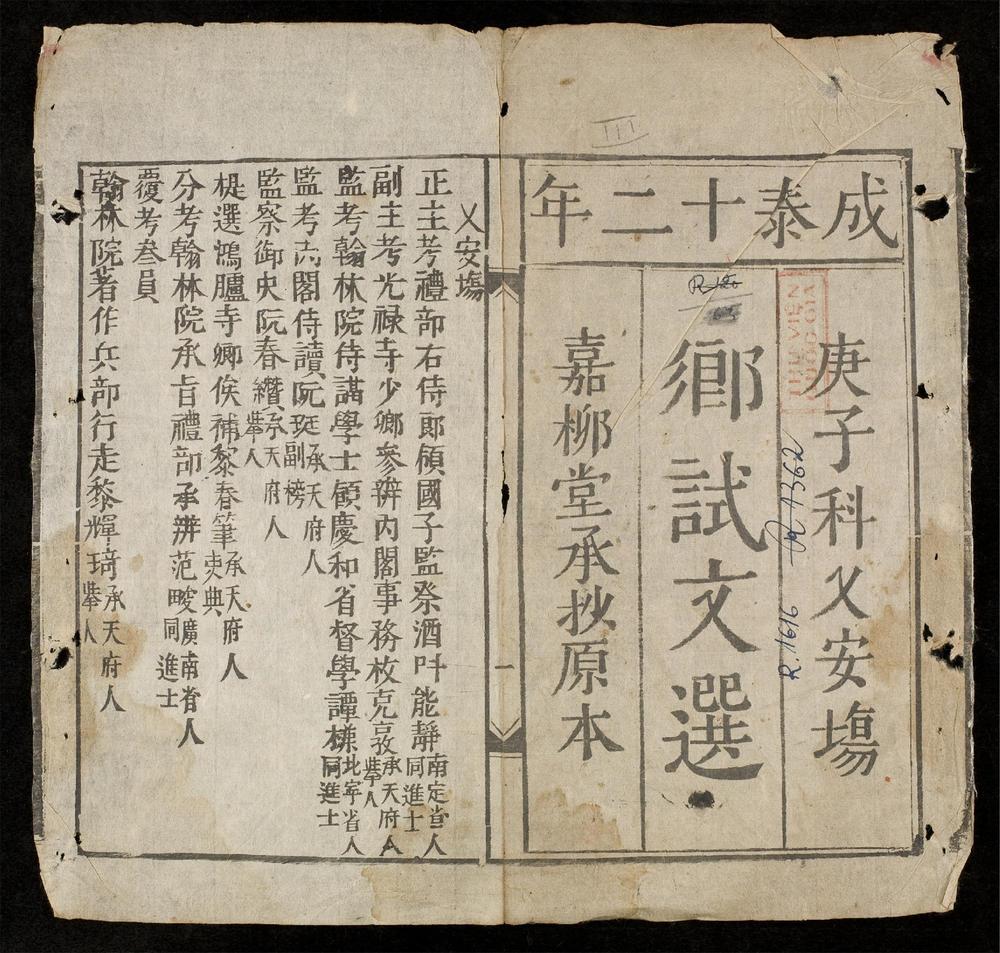 成泰十二年
庚子科乂安塲
鄉試文選
嘉柳堂承抄原本
乂安塲
正主考禮部右侍郎領國子監祭酒叶能靜南定省人同進士
副主考光禄寺少卿參辦内閣事務枚克敦承天府人舉人
監考翰林院侍講學士領慶和省督學譚 北寧省人同進士
監考 閣侍讀阮珽承天府人副榜
監察御史阮春 承天府人舉人
提選鴻臚寺卿俟補黎春筆承天府人吏典
分考翰林院承旨禮部承辨范畯廣南省人同進士
覆考叁員
翰林院著作兵部行走黎輝琦承天府人舉人
一
III
R.1616
A362
THƯ VIỆN
QUỐC GIA